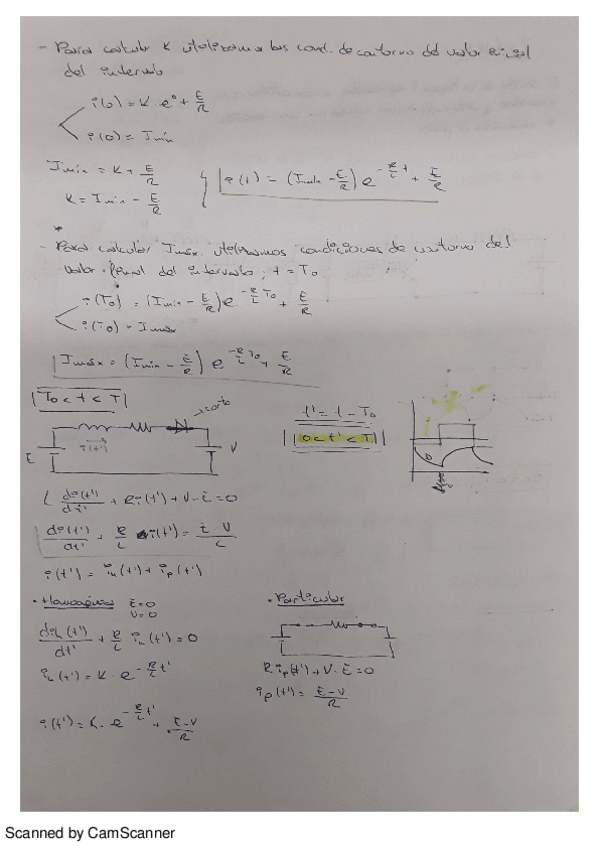 - Para calcular K utilizamos las cond. de contorno del valor inicial
del intervalo
i(0) = K · e⁰ + E/R
i(0) = Imin
Imin = K + E/R
K = Imin - E/R
i(t) = (Imin - E/R) e^(-R/L t) + E/R
- Para calcular Imáx utilizamos condiciones de contorno del
valor final del intervalo, t = To
i(To) = (Imin - E/R) e^(-R/L To) + E/R
i(To) = Imax
Imáx = (Imin - E/R) e^(-R/L To) + E/R
To < t < T
corto
t' = t - To
0 < t' < T
E
i(t')
V
D
L di(t')/dt' + R i(t') + V - E = 0
di(t')/dt' + R/L i(t') = E - V/L
i(t') = ih(t') + ip(t')
· Homogénea E = 0
V = 0
· Particular
dih(t')/dt' + R/L ih(t') = 0
ih(t') = K · e^(-R/L t')
R ip(t') + V - E = 0
ip(t') = E - V/R
i(t') = K · e^(-R/L t') + E - V/R
Scanned by CamScanner